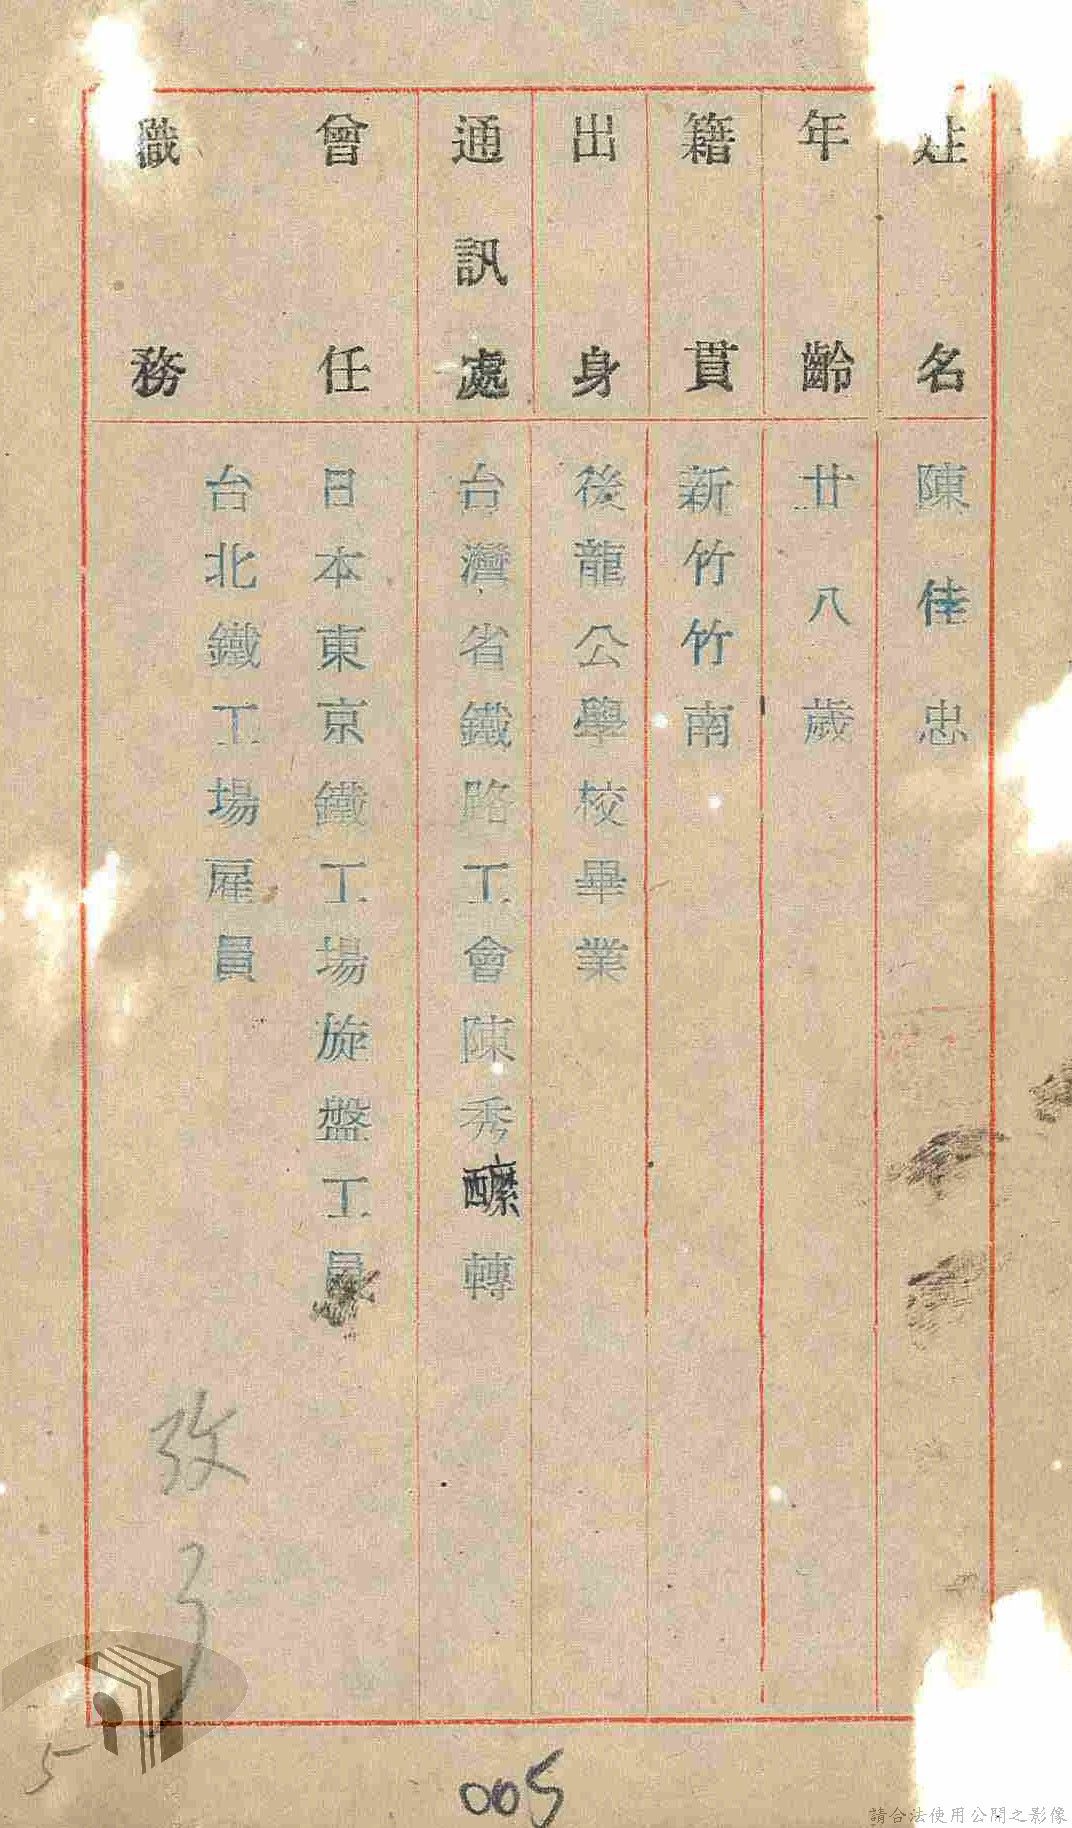 姓名 陳佳忠
年齡 廿八歲
籍貫 新竹竹南
出身 後龍公學校畢業
通訊處 台灣省鐵路工會陳秀醿轉
曾任職務 日本東京鐵工場旋盤工員
台北鐵工場雇員
5
005
請合法使用公開之影像